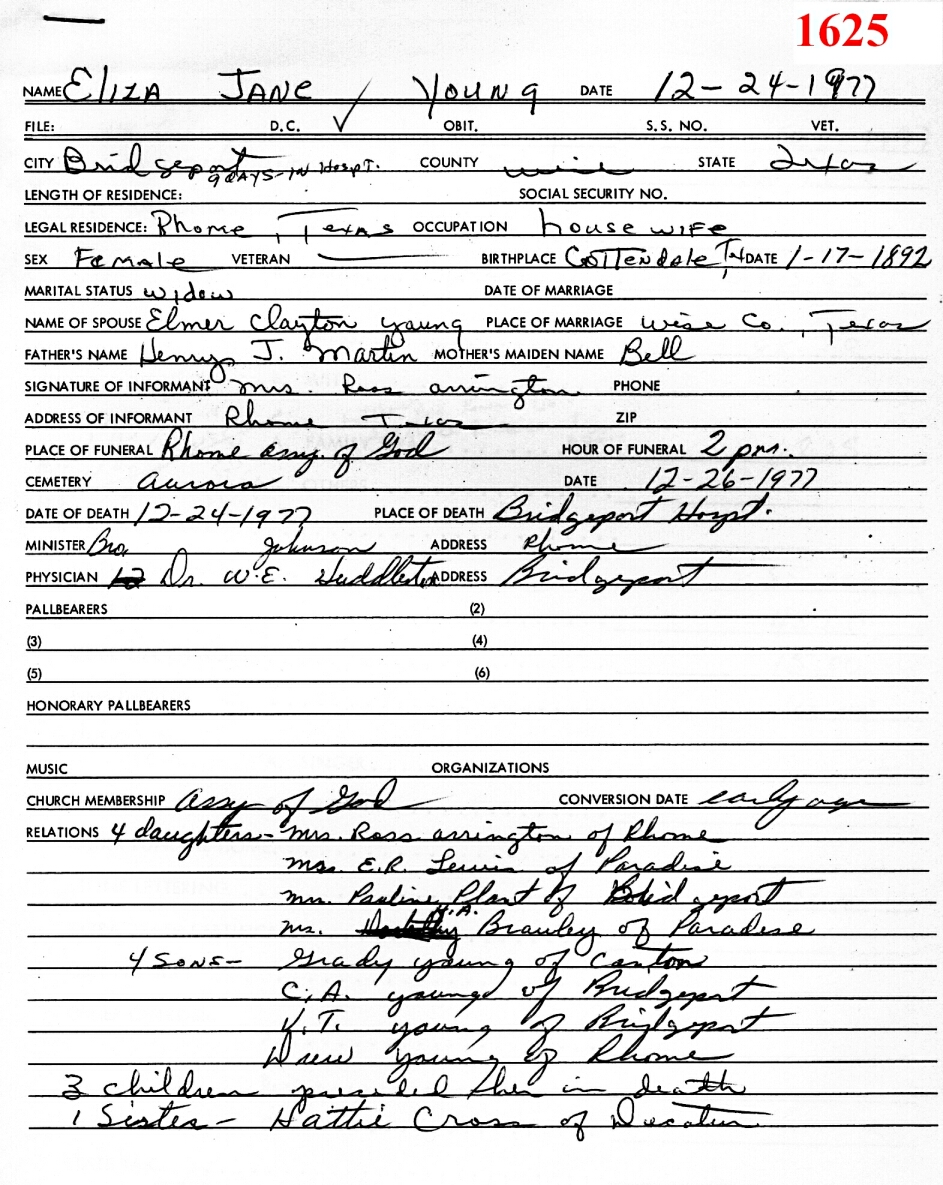 1625
NAME Eliza Jane Young DATE 12-24-1977
FILE: D.C. ✓ OBIT. S.S. NO. VET.
CITY Bridgeport 9 DAYS-IN Hospt. COUNTY Wise STATE Texas
LENGTH OF RESIDENCE: SOCIAL SECURITY NO.
LEGAL RESIDENCE: Rhome, Texas OCCUPATION housewife
SEX Female VETERAN — BIRTHPLACE Cottondale, Tx DATE 1-17-1892
MARITAL STATUS widow DATE OF MARRIAGE
NAME OF SPOUSE Elmer Clayton Young PLACE OF MARRIAGE Wise Co., Texas
FATHER'S NAME Henry J. Martin MOTHER'S MAIDEN NAME Bell
SIGNATURE OF INFORMANT Mrs. Ross Arrington PHONE
ADDRESS OF INFORMANT Rhome Texas ZIP
PLACE OF FUNERAL Rhome Assy. of God HOUR OF FUNERAL 2 pm.
CEMETERY Aurora DATE 12-26-1977
DATE OF DEATH 12-24-1977 PLACE OF DEATH Bridgeport Hospt.
MINISTER Bro. Johnson ADDRESS Rhome
PHYSICIAN Dr. W.E. Huddleston ADDRESS Bridgeport
PALLBEARERS (2)
(3) (4)
(5) (6)
HONORARY PALLBEARERS
MUSIC ORGANIZATIONS
CHURCH MEMBERSHIP Assy of God CONVERSION DATE early age
RELATIONS 4 daughters - Mrs. Ross Arrington of Rhome
Mrs. E.R. Lewis of Paradise
Mrs. Pauline Plant of Bridgeport
Mrs. H.A. Brawley of Paradise
4 SONS - Grady Young of Canton
C.A. Young of Bridgeport
V.T. Young of Bridgeport
Drew Young of Rhome
3 children preceded her in death
1 Sister - Hattie Cross of Decatur